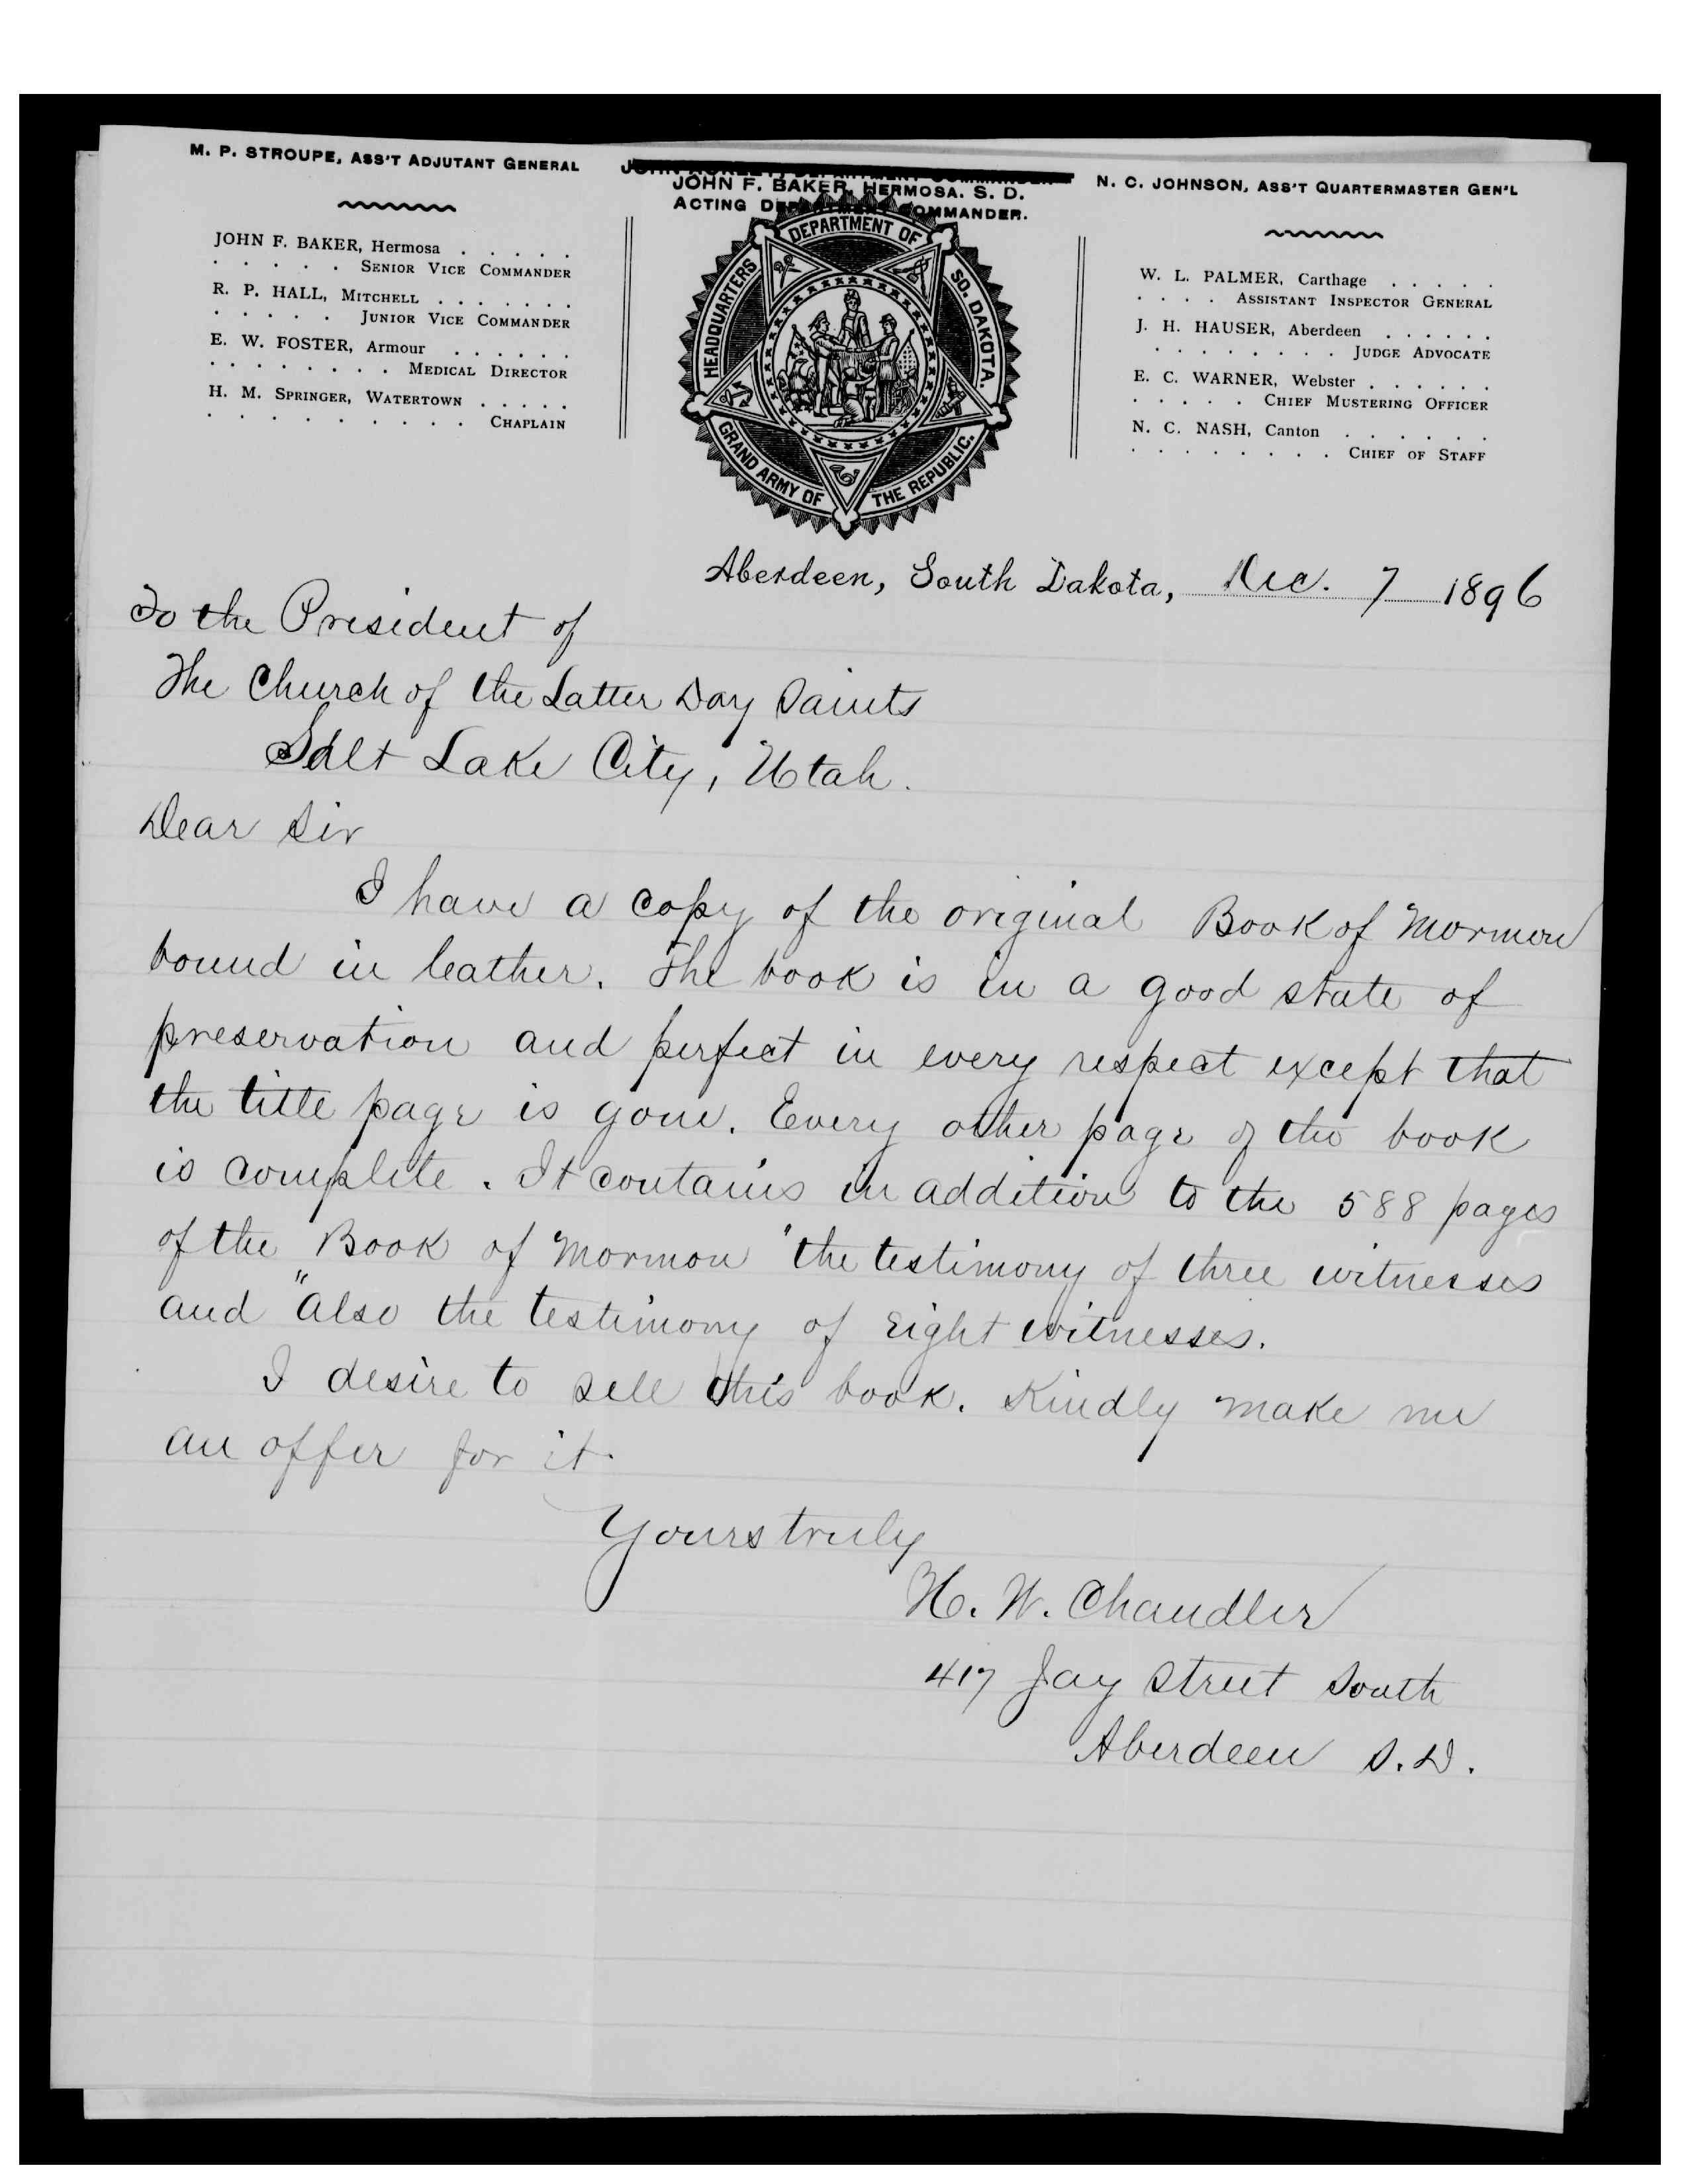 M. P. STROUPE, ASS'T ADJUTANT GENERAL
JOHN F. BAKER, Hermosa . . . . .
. . . . . SENIOR VICE COMMANDER
R. P. HALL, MITCHELL . . . . . . .
. . . . . JUNIOR VICE COMMANDER
E. W. FOSTER, Armour . . . . . .
. . . . . . . . MEDICAL DIRECTOR
H. M. SPRINGER, WATERTOWN . . . . .
. . . . . . . . . CHAPLAIN
JOHN F. BAKER, HERMOSA. S. D.
ACTING DEPARTMENT COMMANDER.
HEADQUARTERS DEPARTMENT OF SO. DAKOTA.
GRAND ARMY OF THE REPUBLIC.
N. C. JOHNSON, ASS'T QUARTERMASTER GEN'L
W. L. PALMER, Carthage . . . . .
. . . . ASSISTANT INSPECTOR GENERAL
J. H. HAUSER, Aberdeen . . . . . .
. . . . . . . . JUDGE ADVOCATE
E. C. WARNER, Webster . . . . . .
. . . . . CHIEF MUSTERING OFFICER
N. C. NASH, Canton . . . . . .
. . . . . . . . CHIEF OF STAFF
Aberdeen, South Dakota, Dec. 7 1896
To the President of
The Church of the Latter Day Saints
Salt Lake City, Utah.
Dear Sir
I have a copy of the original Book of Mormon
bound in leather. The book is in a good state of
preservation and perfect in every respect except that
the title page is gone. Every other page of the book
is complete. It contains in addition to the 588 pages
of the "Book of Mormon" the testimony of three witnesses
and "also the testimony of eight witnesses.
I desire to sell this book. Kindly make me
an offer for it.
Yours truly
H. W. Chandler
417 Jay Street South
Aberdeen S.D.